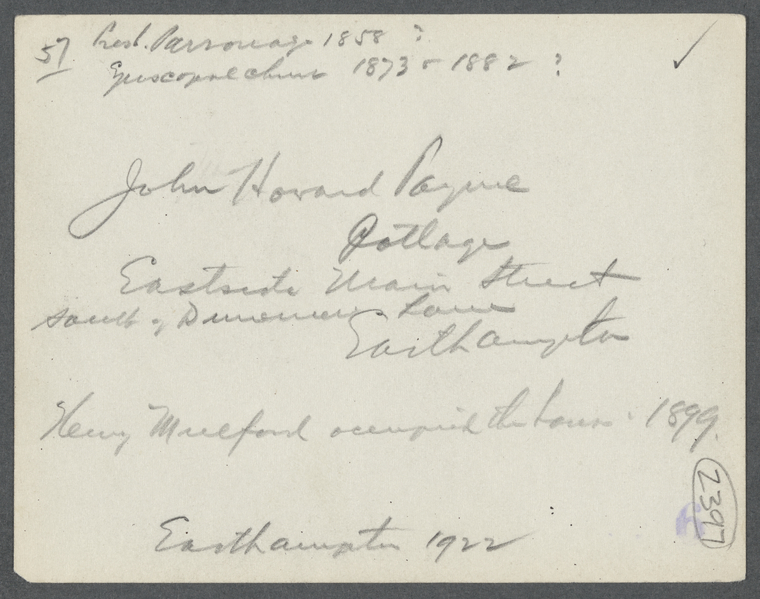 57 Prest. Parsonage 1858 ?
Episcopal church 1873 - 1882 ?
John Howard Payne
Cottage
Eastside Main Street
south of Dunemere Lane
Easthampton
Henry Mulford occupied the house 1899.
Easthampton 1922
2397